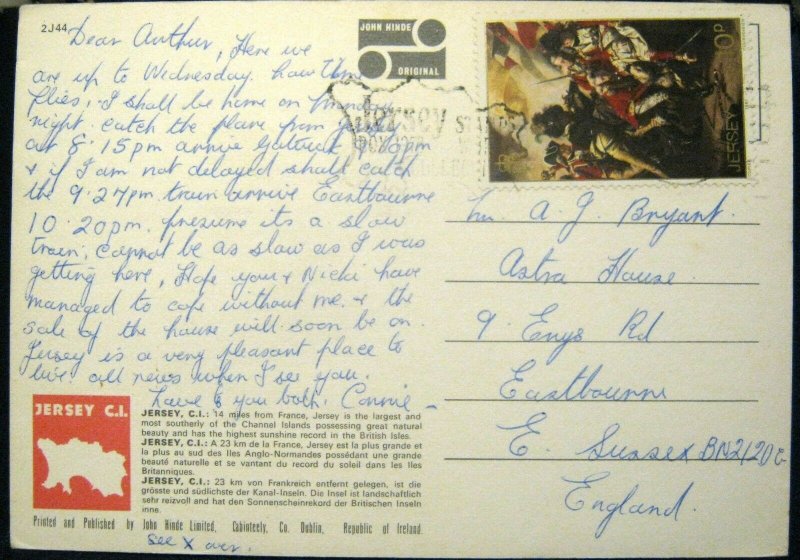 2J44
Dear Arthur, Here we
are up to Wednesday. how time
flies, I shall be home on
night. catch the plane from Jersey
at 8.15pm arrive Gatwick
& if I am not delayed shall catch
the 9.27pm. train arrive Eastbourne
10.20pm. presume its a slow
train, cannot be as slow as I was
getting here, Hope you & Nicki have
managed to cope without me. & the
sale of the house will soon be on.
Jersey is a very pleasant place to
live. all news when I see you.
love to you both. Connie -
JERSEY C.I.
JERSEY, C.I.: 14 miles from France, Jersey is the largest and
most southerly of the Channel Islands possessing great natural
beauty and has the highest sunshine record in the British Isles.
JERSEY, C.I.: A 23 km de la France, Jersey est la plus grande et
la plus au sud des Iles Anglo-Normandes possédant une grande
beauté naturelle et se vantant du record du soleil dans les Iles
Britanniques.
JERSEY, C.I.: 23 km von Frankreich entfernt gelegen, ist die
grösste und südlichste der Kanal-Inseln. Die Insel ist landschaftlich
sehr reizvoll und hat den Sonnenscheinrekord der Britischen Inseln
inne.
Printed and Published by John Hinde Limited, Cabinteely, Co. Dublin, Republic of Ireland
see X over.
JOHN HINDE
ORIGINAL
Jersey
JERSEY
A. J. Bryant.
Astra House.
9. Enys Rd
Eastbourne
E. Sussex BN21 2DG
England.